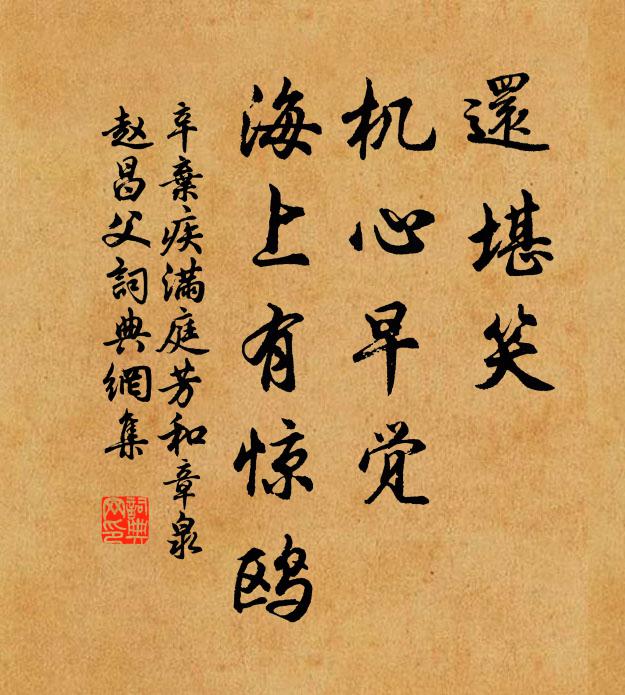 還堪笑
机心早觉
海上有惊鸥
辛棄疾满庭芳和章泉
赵昌父詞典網集
詞典网印